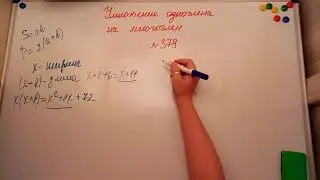 Умножение одночлена
на многочлен
№ 379
S=ab
P=2(a+b)
x - ширина
(x+8) - длина x+8+6=x+14
x(x+8)=x²+8x+72